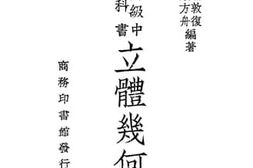 敦復
方舟
編著
級中
科書
立體幾何
商務印書館發行